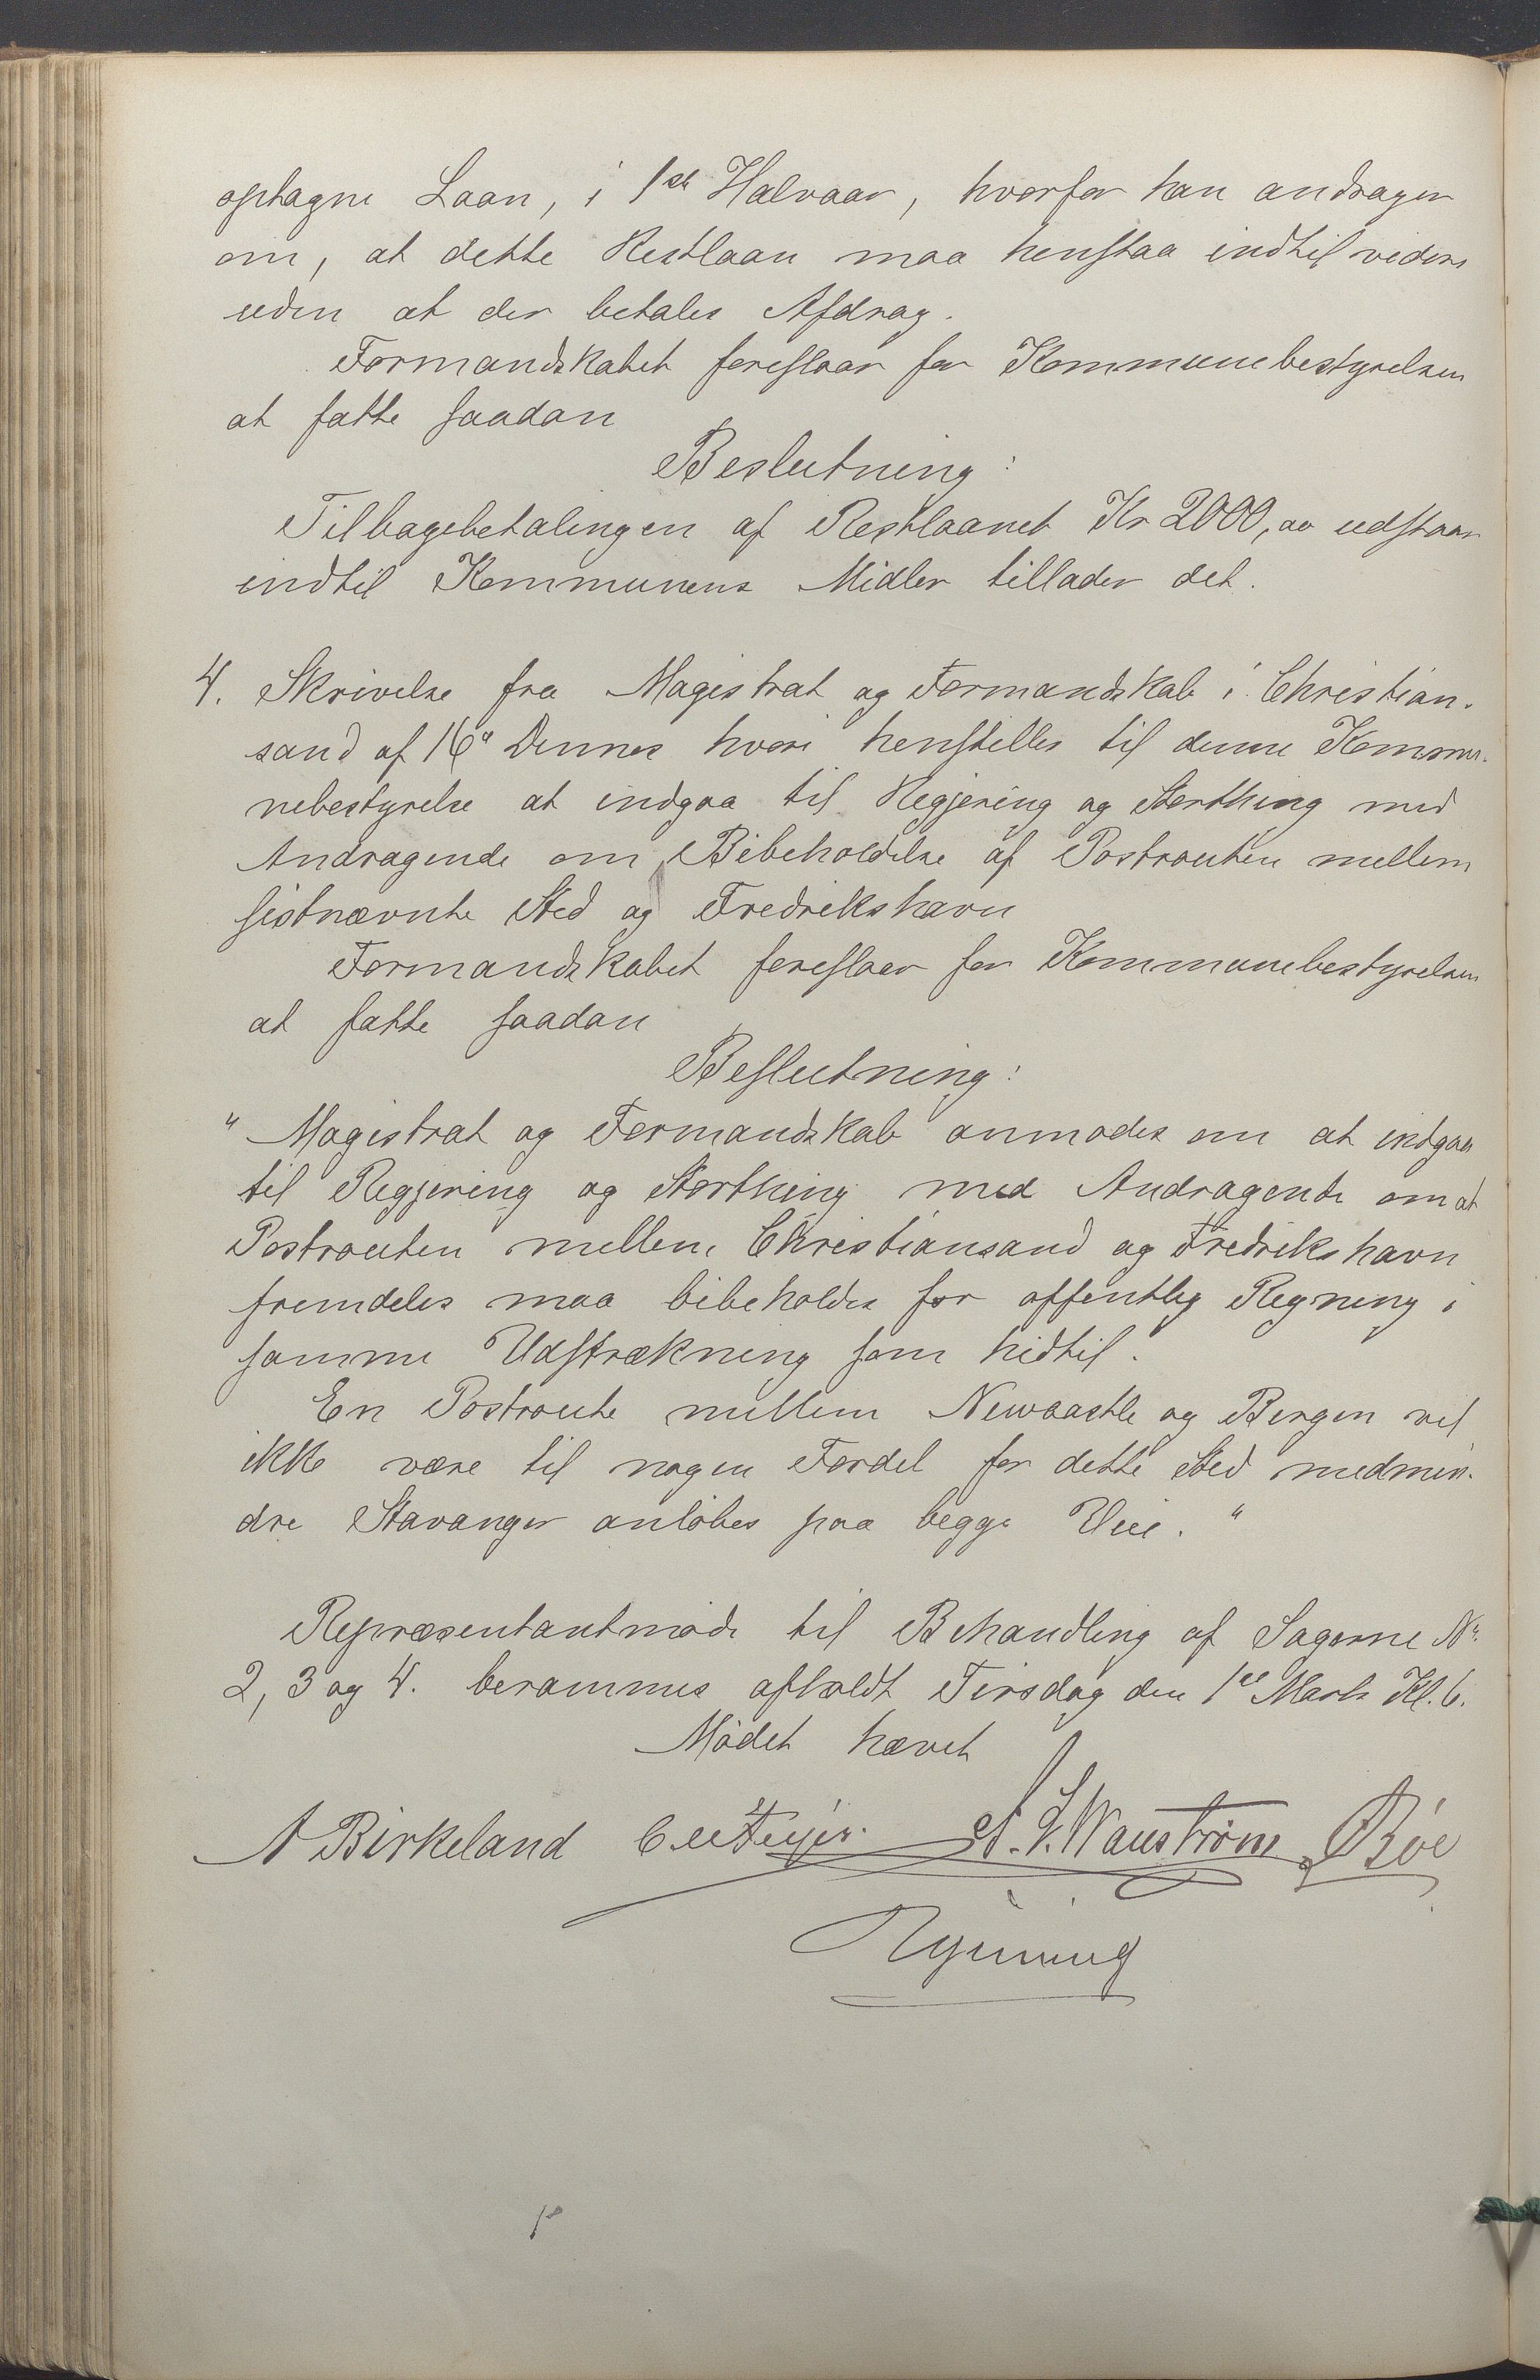 optagne Laan, i 1ste Halvaar, hvorfor han andrager
om, at dette Restlaan maa henstaa indtil videre
uden at der betales Afdrag.
Formandskabet foreslaar for Kommunebestyrelsen
at fatte saadan
Beslutning:
Tilbagebetalingen af Restlaanet Kr 2000,00 udstaar
indtil Kommunens Midler tillader det.
4. Skrivelse fra Magistrat og Formandskab i Christian-
sand af 16" Dennes hvori henstilles til denne Kommu-
nebestyrelse at indgaa til Regjering og Storthing med
Andragende om Bibeholdelse af Postrouten mellem
sistnævnte Sted og Fredrikshavn
Formandskabet foreslaar for Kommunebestyrelsen
at fatte saadan
Beslutning:
"Magistrat og Formandskab anmodes om at indgaa
til Regjering og Storthing med Andragende om at
Postrouten mellem Christiansand og Fredrikshavn
fremdeles maa bibeholdes for offentlig Regning i
samme Udstrækning som hidtil.
En Postroute mellem Newcastle og Bergen vil
ikke være til nogen Fordel for dette Sted medmin-
dre Stavanger anløbes paa begge Veie."
Repræsentantmøde til Behandling af Sagerne No.
2, 3 og 4. berammes afholdt Tirsdag den 1ste Marts Kl. 6.
Mødet hævet
A Birkeland Wanstrøm Bøe